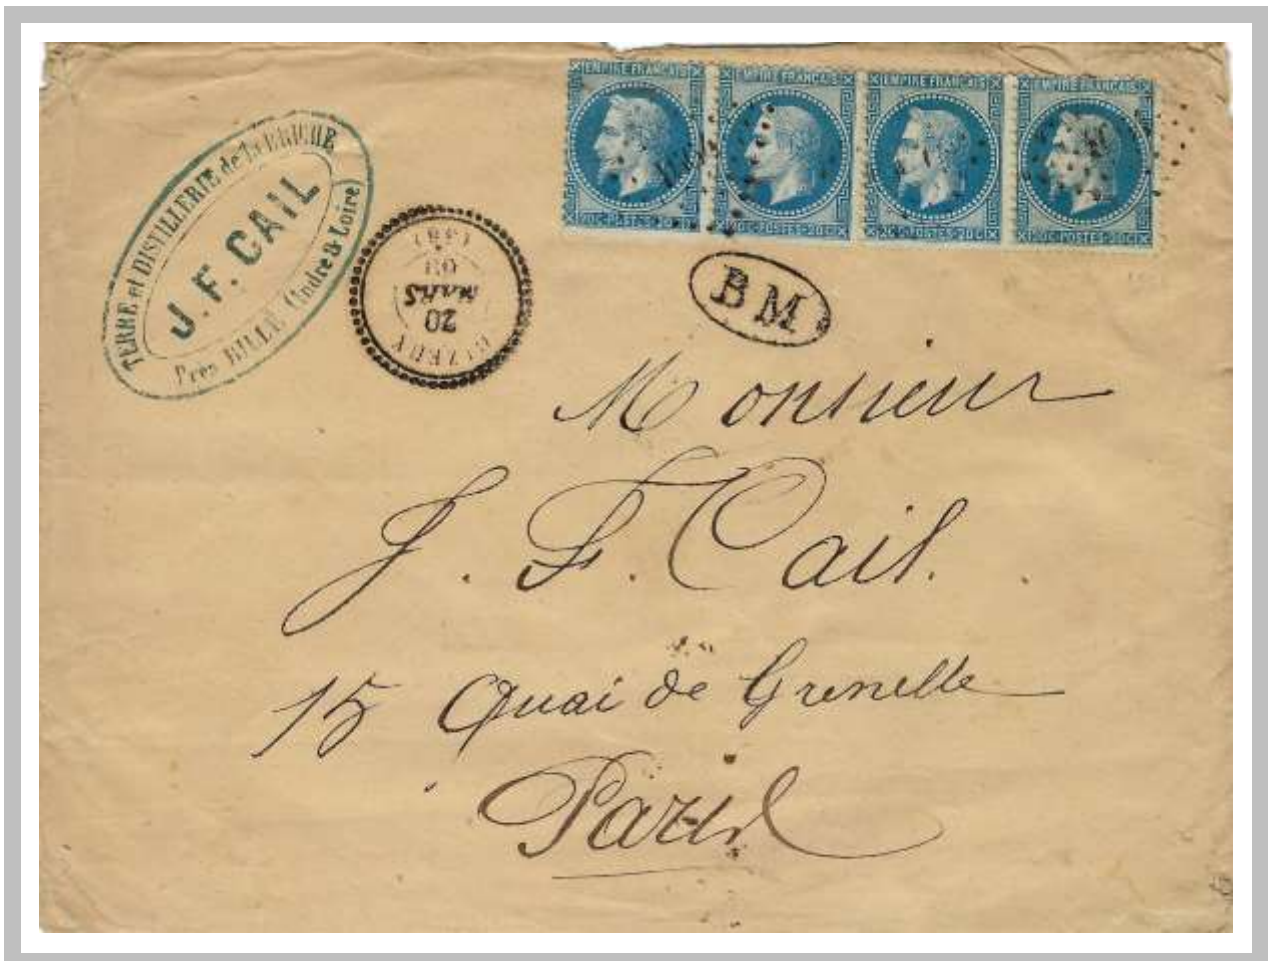 TERRE et DISTILLERIE de la BRICHE
J. F. CAIL
Près RILLÉ (Indre & Loire)
EMPIRE FRANÇAIS
20 C. POSTES 20 C.
EMPIRE FRANÇAIS
20 C. POSTES 20 C.
EMPIRE FRANÇAIS
20 C. POSTES 20 C.
EMPIRE FRANÇAIS
20 C. POSTES 20 C.
20
MARS
69
BM
Monsieur
J. F. Cail.
15 Quai de Grenelle
Paris